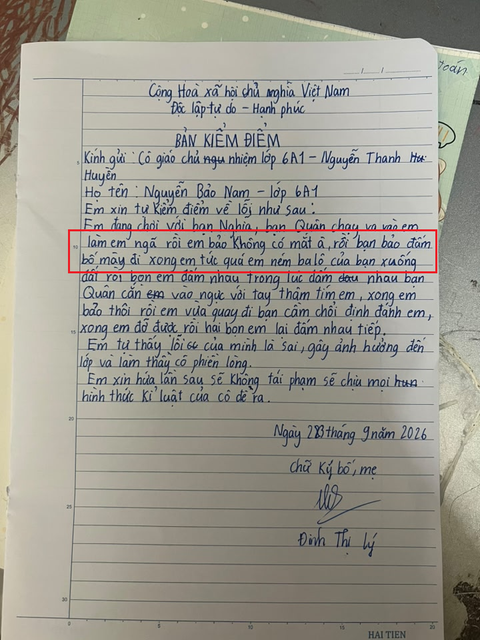 Toán
.../.../...
Cộng Hoà xã hội chủ nghĩa Việt Nam
Độc lập tự do - Hạnh phúc
BẢN KIỂM ĐIỂM
Kính gửi: Cô giáo chủ ngu nhiệm lớp 6A1 - Nguyễn Thanh Hu
Huyền
Họ tên: Nguyễn Bảo Nam - lớp 6A1
Em xin tự kiểm điểm về lỗi như sau:
Em đang chơi với bạn Nghĩa, bạn Quân chạy va vào em
làm em ngã rồi em bảo Không có mắt à, rồi bạn bảo đấm
bố mày đi xong em tức quá em ném balô của bạn xuống
đất rồi bọn em đấm nhau trong lúc đấm nhau bạn
Quân cắn em vào ngực với tay thâm tím em, xong em
bảo thôi rồi em vừa quay đi bạn cầm chổi định đánh em,
xong em đỡ được rồi hai bọn em lại đấm nhau tiếp.
Em tự thấy lỗi của mình là sai, gây ảnh hưởng đến
lớp và làm thầy cô phiền lòng.
Em xin hứa lần sau sẽ Không tái phạm sẽ chịu mọi hun
hình thức Kỉ luật của cô đề ra.
Ngày 23 tháng 9 năm 2026
Chữ Ký bố, mẹ
Đinh Thị Lý
5
10
15
20
25
30
5
10
15
20
HAI TIEN